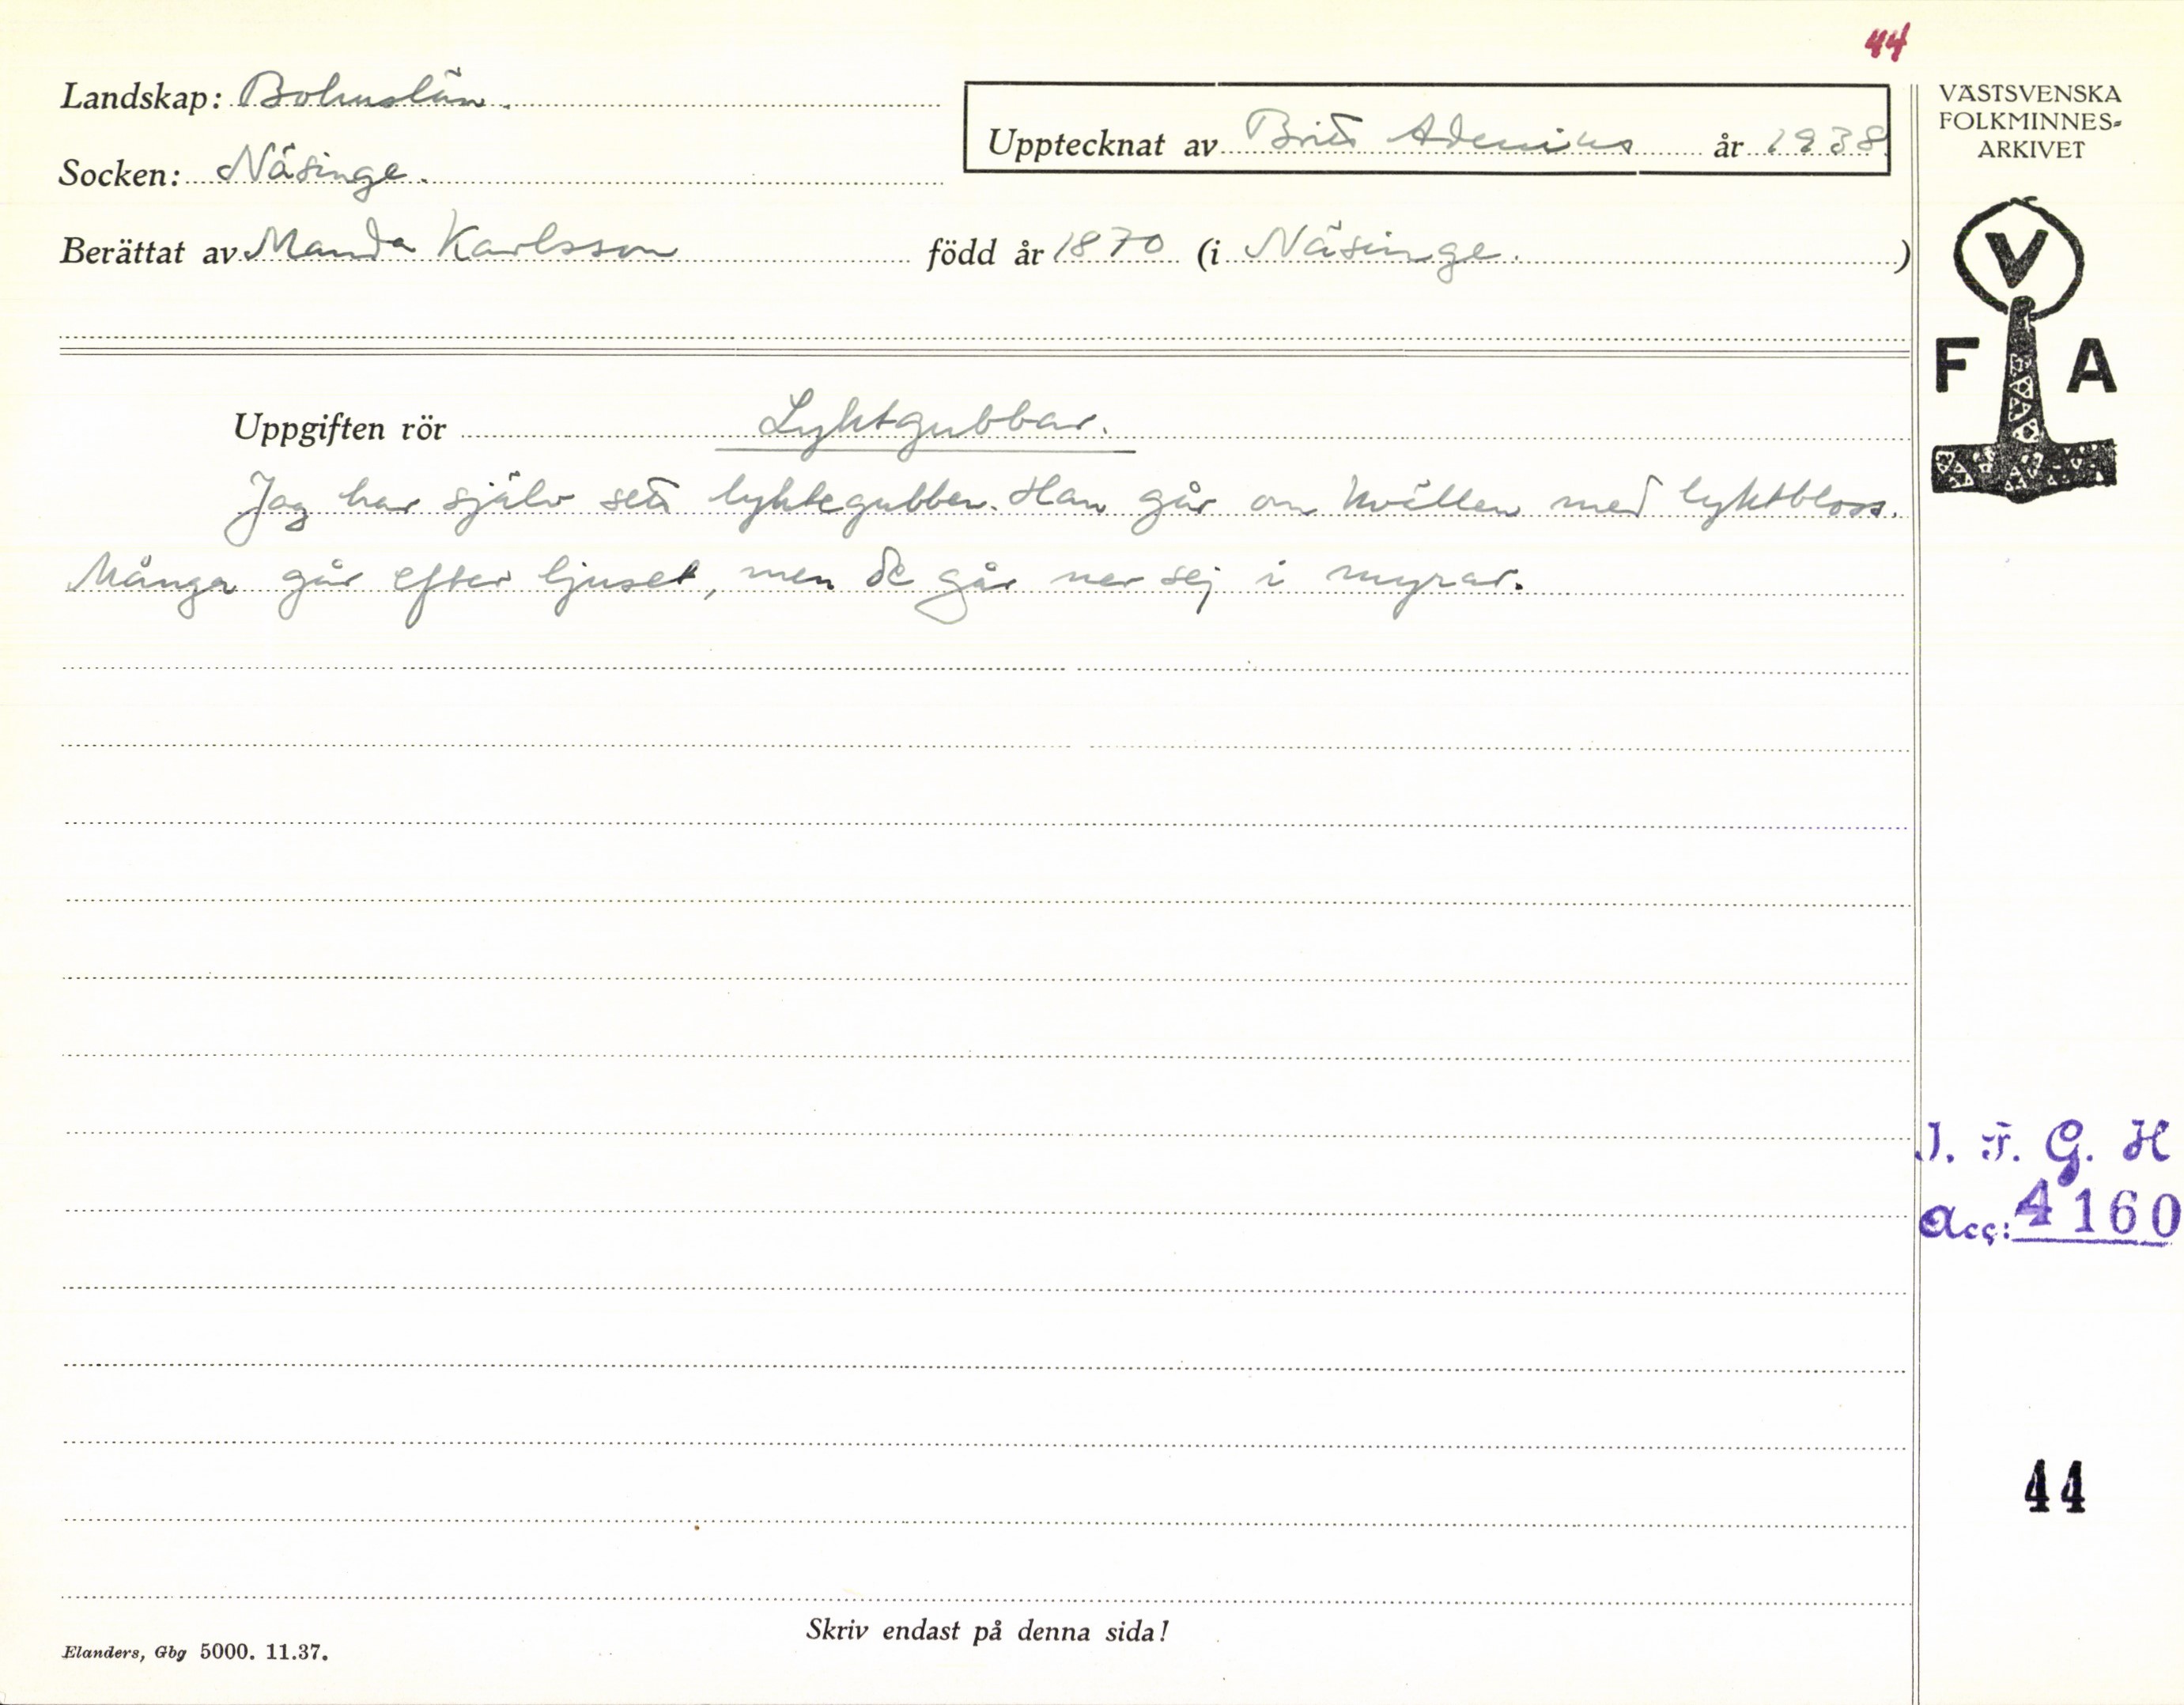 44
Landskap: Bohuslän.
Upptecknat av Britt Adenius år 1938
Socken: Näsinge.
Berättat av Manda Karlsson född år 1870 (i Näsinge.)
VÄSTSVENSKA
FOLKMINNES-
ARKIVET
V
F A
Uppgiften rör Lyktgubbar.
Jag har själv sett lyktegubben. Han går om kvällen med lyktbloss.
Många går efter ljuset, men de går ner sej i myrar.
I. F. G. H
Acc: 4160
44
Skriv endast på denna sida!
Elanders, Gbg 5000. 11.37.